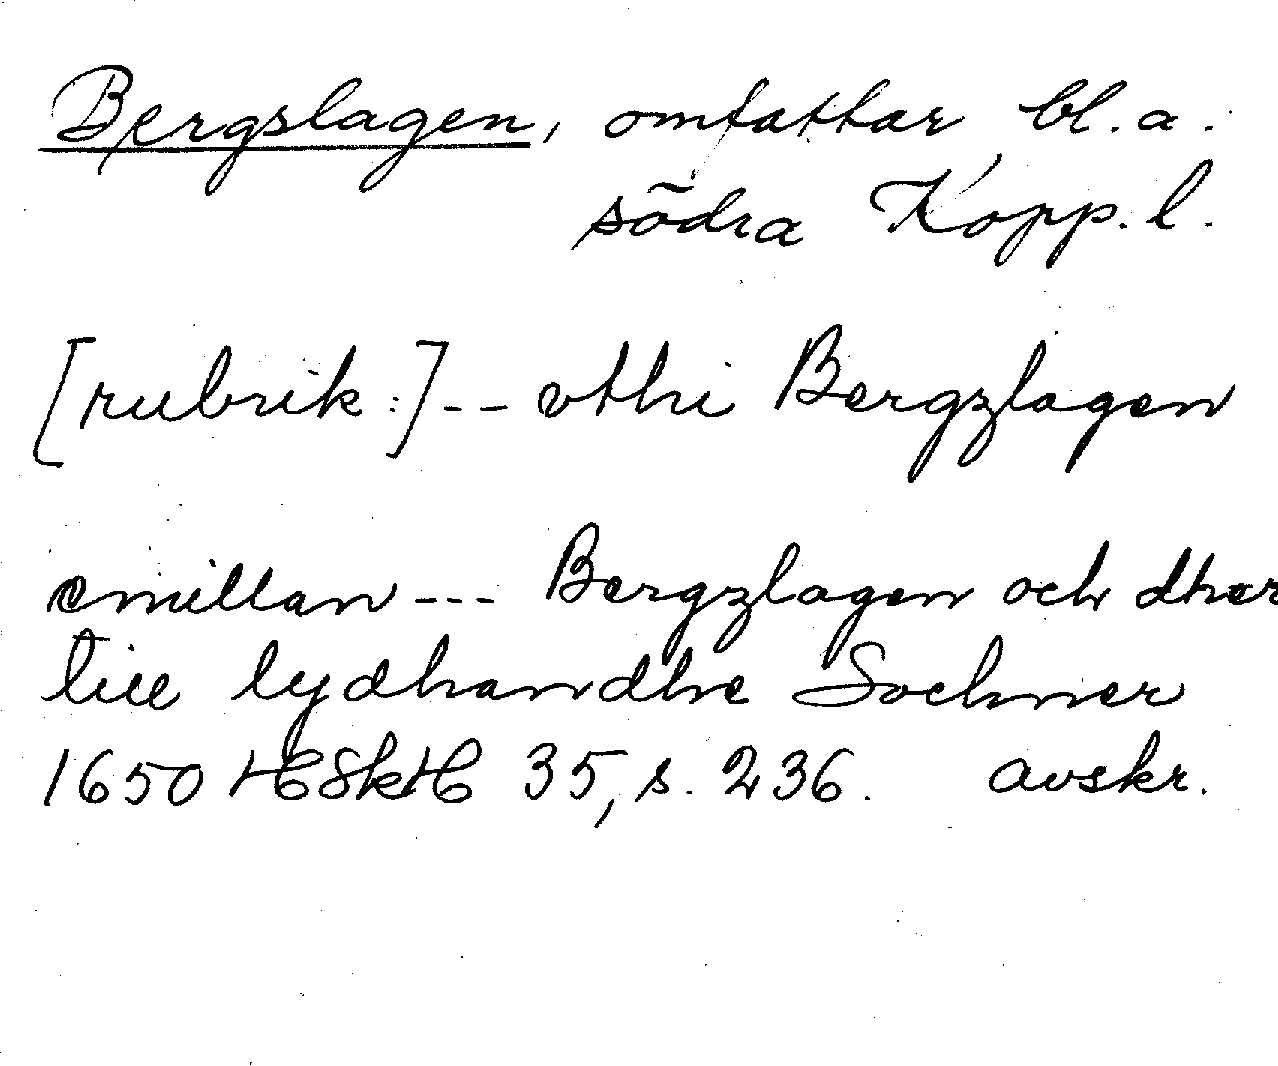 Bergslagen, omfattar bl.a.
södra Kopp.l.
[rubrik:]-- vthi Bergzlagen
emillan --- Bergzlagen och dher
till lydhandhe Sochner
1650 35, s. 236. avskr.